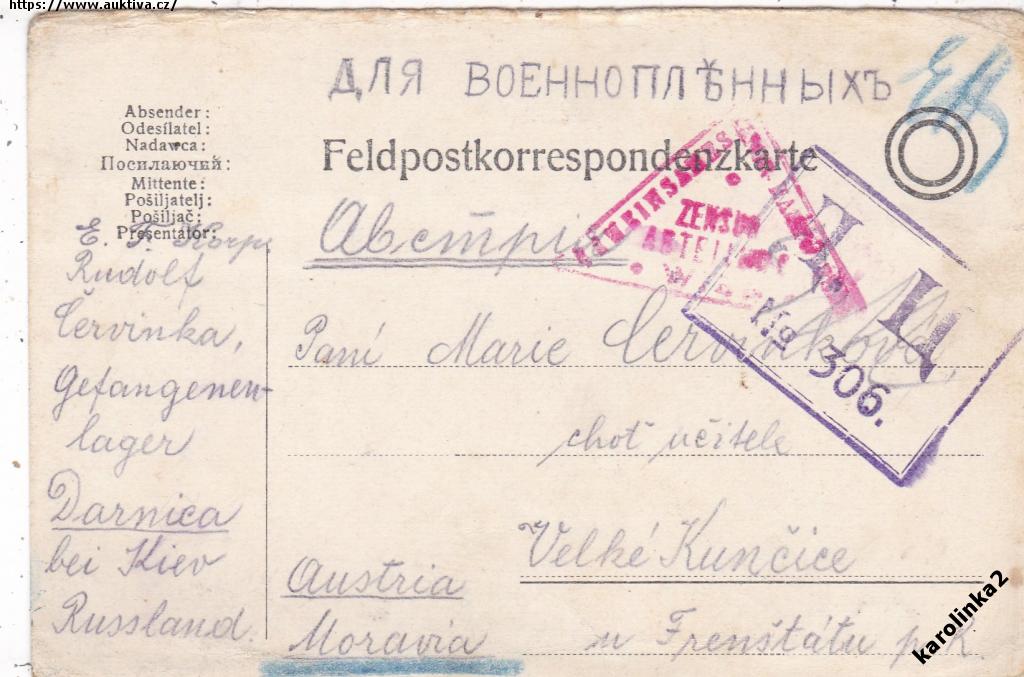 https://www.auktiva.cz/
ДЛЯ ВОЕННОПЛѢННЫХЪ
Absender:
Odesílatel:
Nadawca:
Посилаючий:
Mittente:
Pošiljatelj:
Pošiljač:
Presentator:
Feldpostkorrespondenzkarte
E. F. Korp.
Rudolf
Červinka,
Gefangenen-
lager
Darnica
bei Kiev
Russland.
Австрия
ZENSUR
ABTEILUNG
Wien
Д Ц
№ 306.
Paní Marie Červinková,
choť učitele
Velké Kunčice
u Frenštátu p. R.
Austria
Moravia
karolinka2